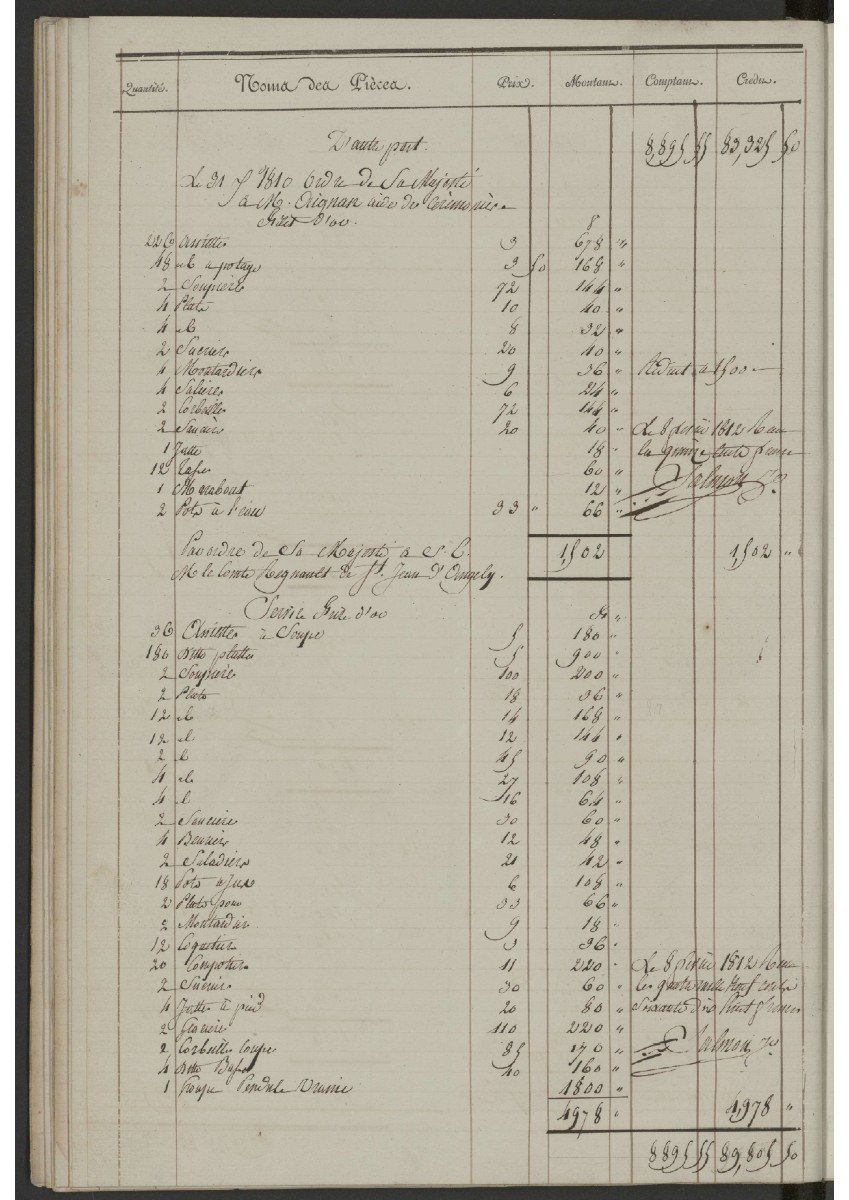 Quantité. Noms des Pièces. Prix. Montant. Comptant. Crédit.
D'autre port. 8,895 55 83,325 50
Le 31 7bre 1810 Ordre de Sa Majesté
à M. Aignan aide des Cérémonies
Filet d'or. f
226 Assiettes 3 678 "
48 do à potage 3 50 168 "
2 Soupières 72 144 "
4 Plats 10 40 "
4 do 8 32 "
2 Sucriers 20 40 "
4 Moutardiers 9 36 " Réduit à 1500 -
4 Salières 6 24 "
2 Corbeilles 72 144 "
2 Saucières 20 40 " Le 8 février 1812 Reçu
1 Jatte 18 " la
12 Tasses 60 " Salmon
1 Marabout 12 "
2 Pots à l'eau 33 " 66 "
1,502 1,502 "
Par ordre de Sa Majesté, à S. E.
M. le Comte Regnault de St. Jean d'Angely.
Service Filet d'or fr "
36 Assiettes à Soupe 5 180 "
180 Ditto plattes 5 900 "
2 Soupières 100 200 "
2 Plats 18 36 "
12 do 14 168 "
12 do 12 144 "
2 do 45 90 "
4 do 27 108 "
4 do 16 64 "
2 Saucières 30 60 "
4 Beuriers 12 48 "
2 Saladiers 21 42 "
18 Pots à Jus 6 108 "
2 Plats pour 33 66 "
2 Moutardiers 9 18 "
12 Coquetiers 3 36 "
20 Compotiers 11 220 " Le 8 février 1812 Reçu
2 Sucriers 30 60 " les quatre mille Neuf cents
4 Jattes à pied 20 80 " Soixante dix huit francs
2 Glacières 110 220 "
2 Corbeilles Coupe 85 170 " Salmon
4 Ditto Basses 40 160 "
1 Groupe Pendule 1800 "
4978 " 4,978 "
8895 55 89,805 50